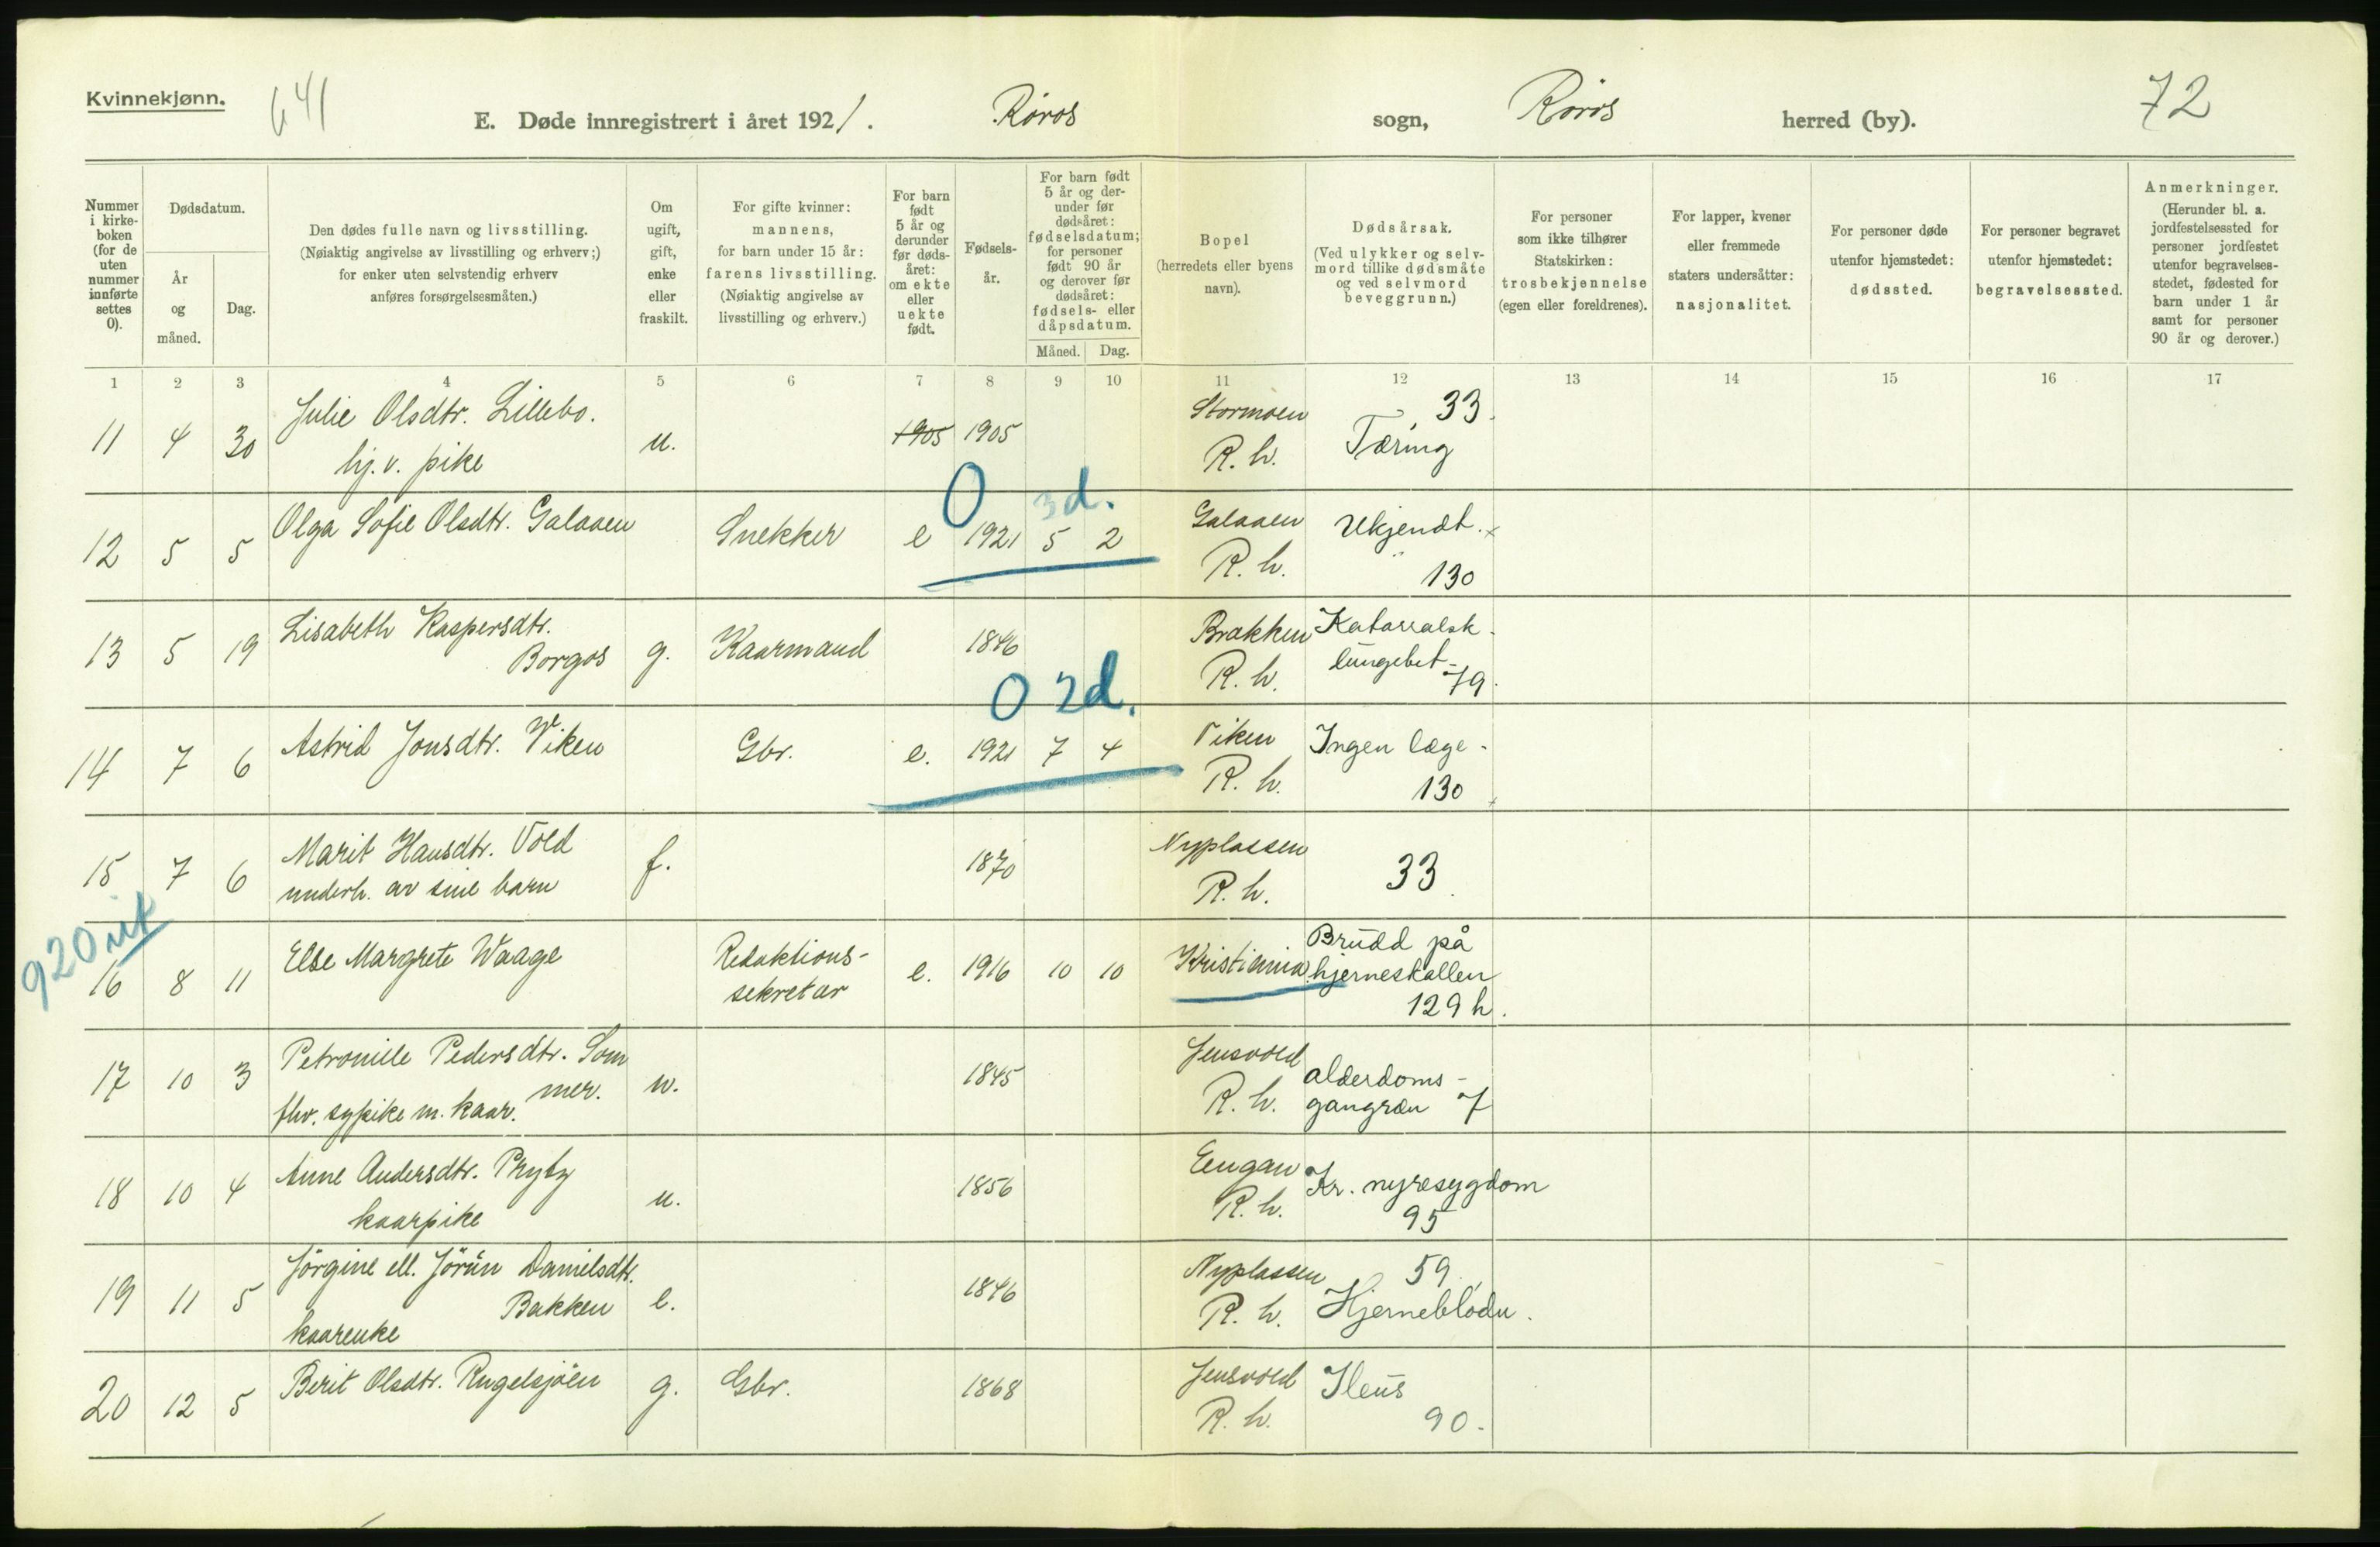 Kvinnekjønn.
641
E. Døde innregistrert i året 1921.
Røros
sogn,
Røros
herred (by).
72
Nummer i kirke-boken (for de uten nummer innførte settes 0).
Dødsdatum.
År og måned.
Dag.
Den dødes fulle navn og livsstilling.
(Nøiaktig angivelse av livsstilling og erhverv;)
for enker uten selvstendig erhverv
anføres forsørgelsesmåten.)
Om ugift, gift, enke eller fraskilt.
For gifte kvinner:
mannens,
for barn under 15 år:
farens livsstilling.
(Nøiaktig angivelse av
livsstilling og erhverv.)
For barn født 5 år og derunder før døds-året: om ekte eller uekte født.
Fødsels-år.
For barn født 5 år og der-under før dødsåret: fødselsdatum; for personer født 90 år og derover før dødsåret: fødsels- eller dåpsdatum.
Måned.
Dag.
Bopel
(herredets eller byens
navn).
Dødsårsak.
(Ved ulykker og selv-
mord tillike dødsmåte
og ved selvmord
beveggrunn.)
For personer
som ikke tilhører
Statskirken:
trosbekjennelse
(egen eller foreldrenes).
For lapper, kvener
eller fremmede
staters undersåtter:
nasjonalitet.
For personer døde
utenfor hjemstedet:
dødssted.
For personer begravet
utenfor hjemstedet:
begravelsessted.
Anmerkninger.
(Herunder bl. a.
jordfestelsessted for
personer jordfestet
utenfor begravelses-
stedet, fødested for
barn under 1 år
samt for personer
90 år og derover.)
1 2 3 4 5 6 7 8 9 10 11 12 13 14 15 16 17
Julie Olsdtr. Lillebo. Stormoen 33.
11 4 30 u. 1905 1905 Tæring
hj. v. pike R. h.
0 3d.
Olga Sofie Olsdtr. Galaaen Galaaen Ukjendt.
12 5 5 Snekker e 1921 5 2
R. h. 130
Lisabeth Kaspersdtr. Brækken Katarralsk
13 5 19 Borgos g. Kaarmand 1846 lungebet-
R. h. 79.
0 2d.
Astrid Jonsdtr. Viken Viken Ingen læge-
14 7 6 Gbr. e. 1921 7 4
R. h. 130
Marit Hansdtr. Vold Nyplassen
15 7 6 f. 1870 33
underh. av sine barn R. h.
920 ut
Else Margrete Waage Redaktions- Brudd på
16 8 11 e. 1916 10 10 Kristiania hjerneskallen
sekretær 129 h.
Petronille Pedersdtr. Som Jensvold
17 10 3 mer. u. 1845 alderdoms-
fhv. sypike m. kaar. R. h. gangræn 7
Anne Andersdtr. Prytz Engan
18 10 4 u. 1856 Kr. nyresygdom
kaarpike R. h. 95
Jörgine ell. Jörün Danielsdtr. Nyplassen 59.
19 11 5 Bakken e. 1846
kaarenke R. h. Hjerneblödn.
Berit Olsdtr. Rugelsjöen Jensvold Ileus
20 12 5 g. Gbr. 1868
R. h. 90.